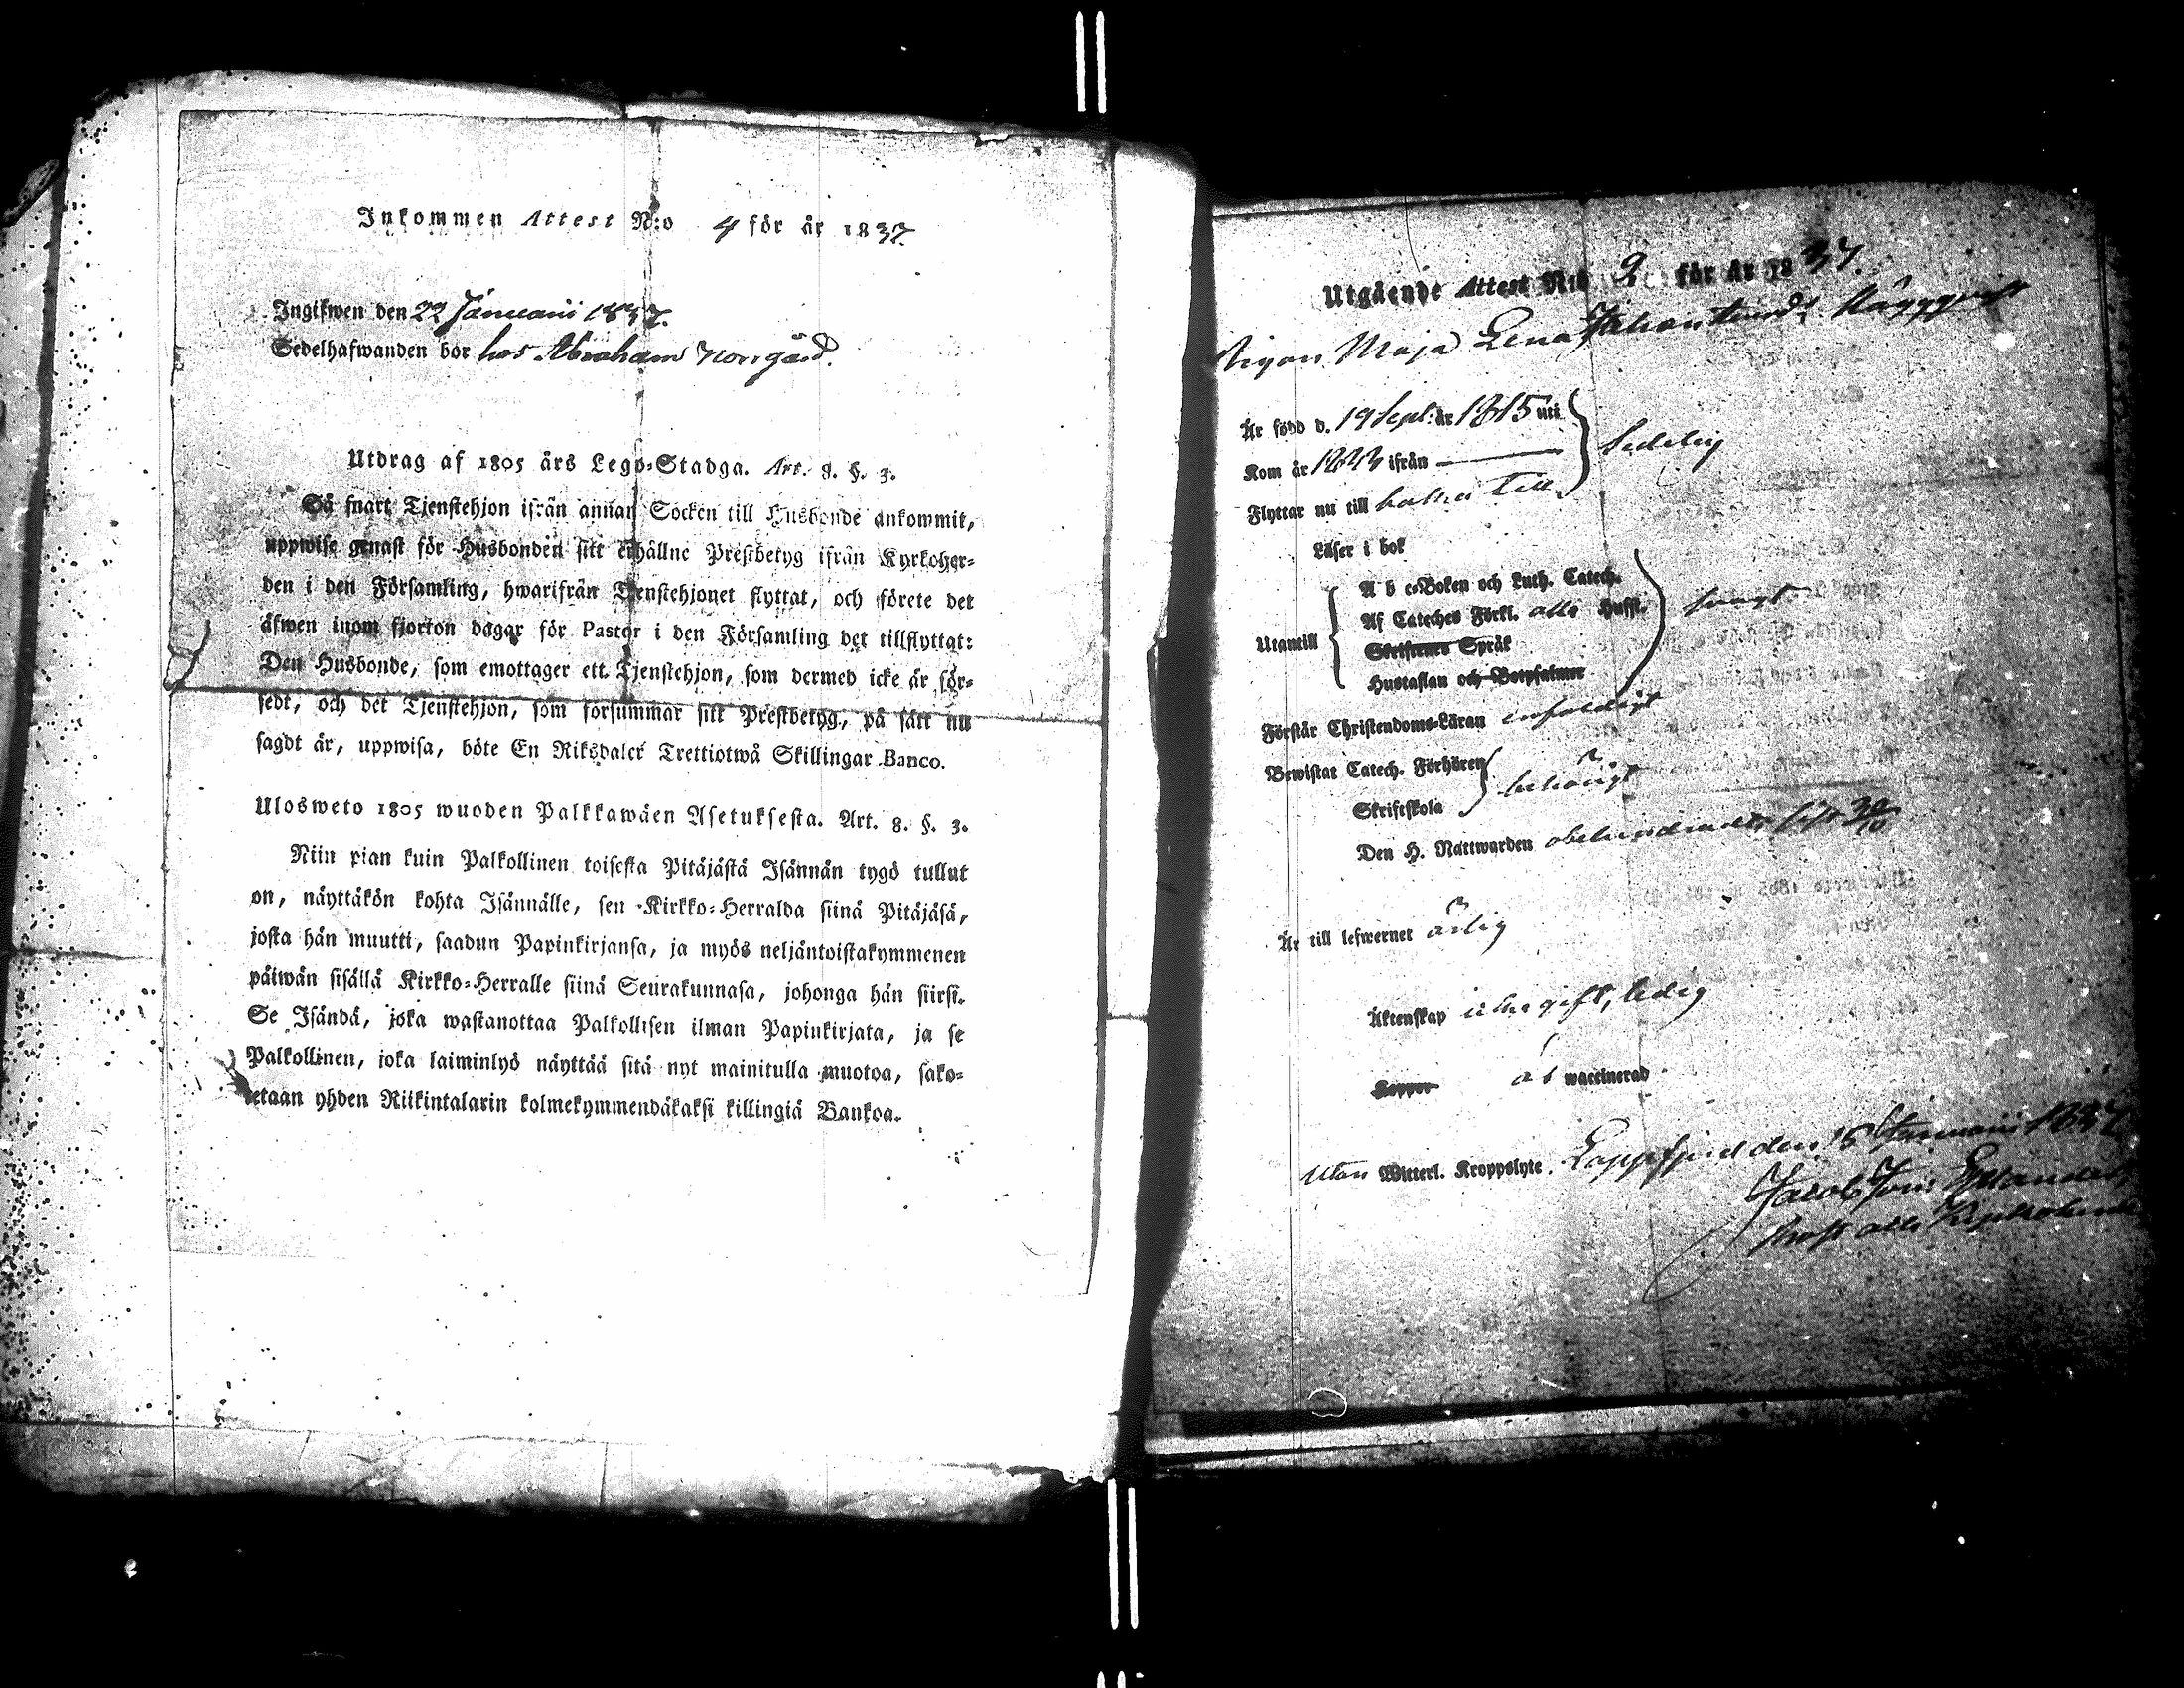 Inkommen Attest N:o 4 för år 1837.
Ingifwen den 22 Januarii 1837.
Sedelhafwanden bor hos Abraham Norrgård.
Utdrag af 1805 års Lego-Stadga. Art. 8. §. 3.
Så snart Tjenstehjon ifrån annan Socken till Husbonde ankommit,
uppwise genast för Husbonden sitt erhållne Prestbetyg ifrån Kyrkoher-
den i den Församling, hwarifrån Tjenstehjonet flyttat, och förete det
äfwen inom fjorton dagar för Pastor i den Församling det tillflyttat:
Den Husbonde, som emottager ett Tjenstehjon, som dermed icke är för-
sedt, och det Tjenstehjon, som försummar sitt Prestbetyg, på sätt nu
sagdt är, uppwisa, böte En Riksdaler Trettiotwå Skillingar Banco.
Ulosweto 1805 wuoden Palkkawäen Asetuksesta. Art. 8. §. 3.
Niin pian kuin Palkollinen toisesta Pitäjästä Isännän tygö tullut
on, näyttäkön kohta Isännälle, sen Kirkko-Herralda siinä Pitäjäsä,
josta hän muutti, saadun Papinkirjansa, ja myös neljäntoistakymmenen
päiwän sisällä Kirkko-Herralle siinä Seurakunnasa, johonga hän siirsi.
Se Isändä, joka wastanottaa Palkollisen ilman Papinkirjata, ja se
Palkollinen, joka laiminlyö näyttää sitä nyt mainitulla muotoa, sako-
tetaan yhden Riikintalarin kolmekymmendäkaksi killingiä Bankoa.
Utgående Attest N:o 2 för år 1837.
Pigan Maja Lena Johansdr
Är född d. 19 Sept: år 1815 uti
Kom år 1833 ifrån —
Flyttar nu till
Läser i bok
A b c-Boken och Luth. Catech.
Af Cateches Förkl. alla Hufst.
Utantill
Skriftenes Språk
Hustaflan och Botpsalmer
Förstår Christendoms-Läran enfaldigt
Bewistat Catech. Förhören
behörigt
Skriftskola
Den H. Nattwarden obehindradt sist 30/10
Är till lefwernet ärlig
Äktenskap icke gift, ledig
Koppor är waccinerad
Utan Witterl. Kroppslyte. Lappfjerd den 15 Januarii 1837
Jacob Jon:
Prost och Kyrkoherde